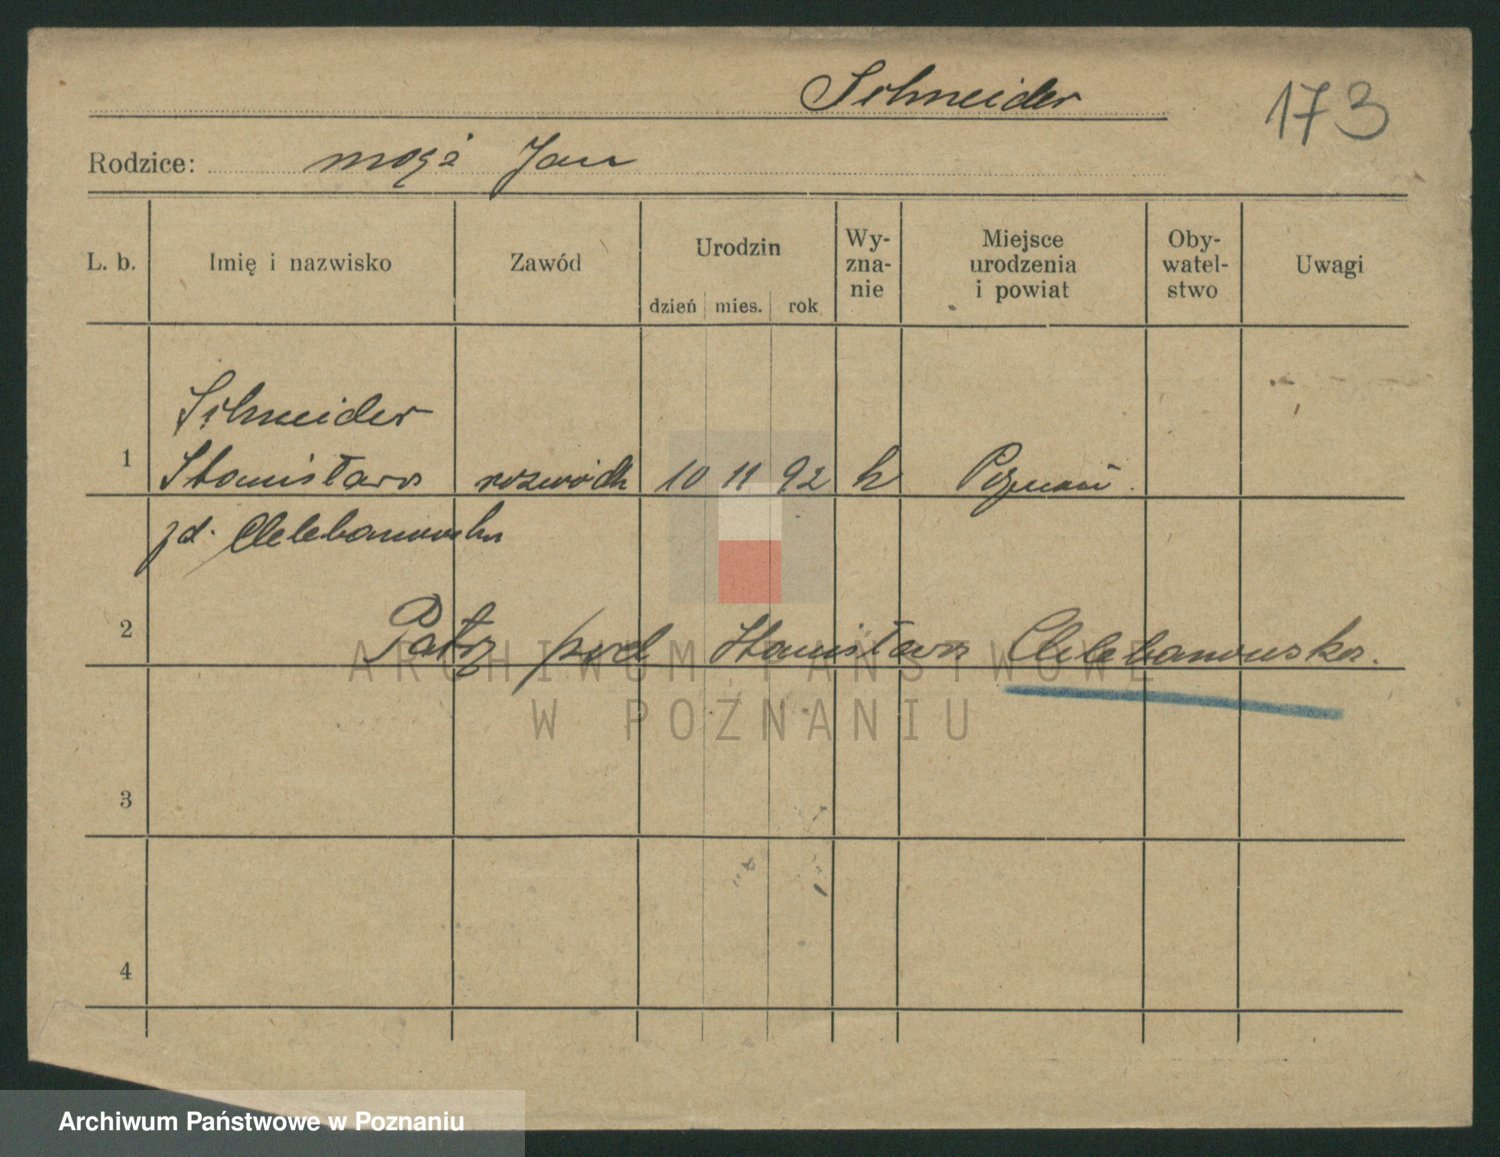 Schneider
173
Rodzice: mąż Jan
L. b. Imię i nazwisko Zawód Urodzin dzień mies. rok Wy-zna-nie Miejsce urodzenia i powiat Oby-watel-stwo Uwagi
Schneider
1 Stanisława rozwódk 10 11 92 k Poznań.
zd.
2 Patrz pod Stanisława
3
4
ARCHIWUM PAŃSTWOWE
W POZNANIU
Archiwum Państwowe w Poznaniu